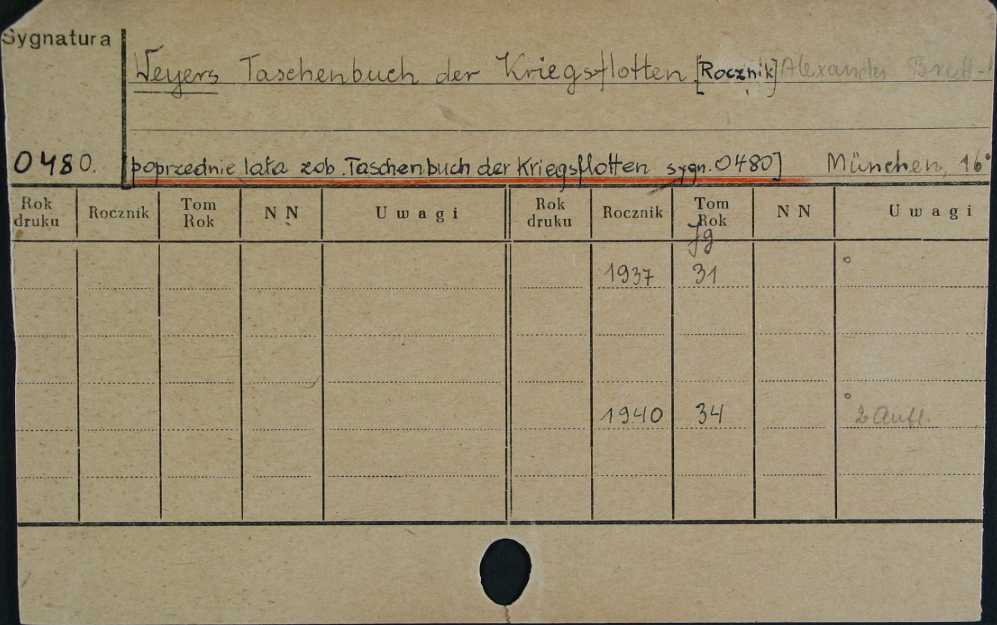 Sygnatura
Weyers Taschenbuch der Kriegsflotten [Rocznik] Alexander
0480. [poprzednie lata zob. Taschenbuch der Kriegsflotten sygn. 0480] München, 16°
Rok druku Rocznik Tom Rok NN Uwagi Rok druku Rocznik Tom Rok NN Uwagi
Jg
1937 31 °
1940 34 ° 2 Aufl.